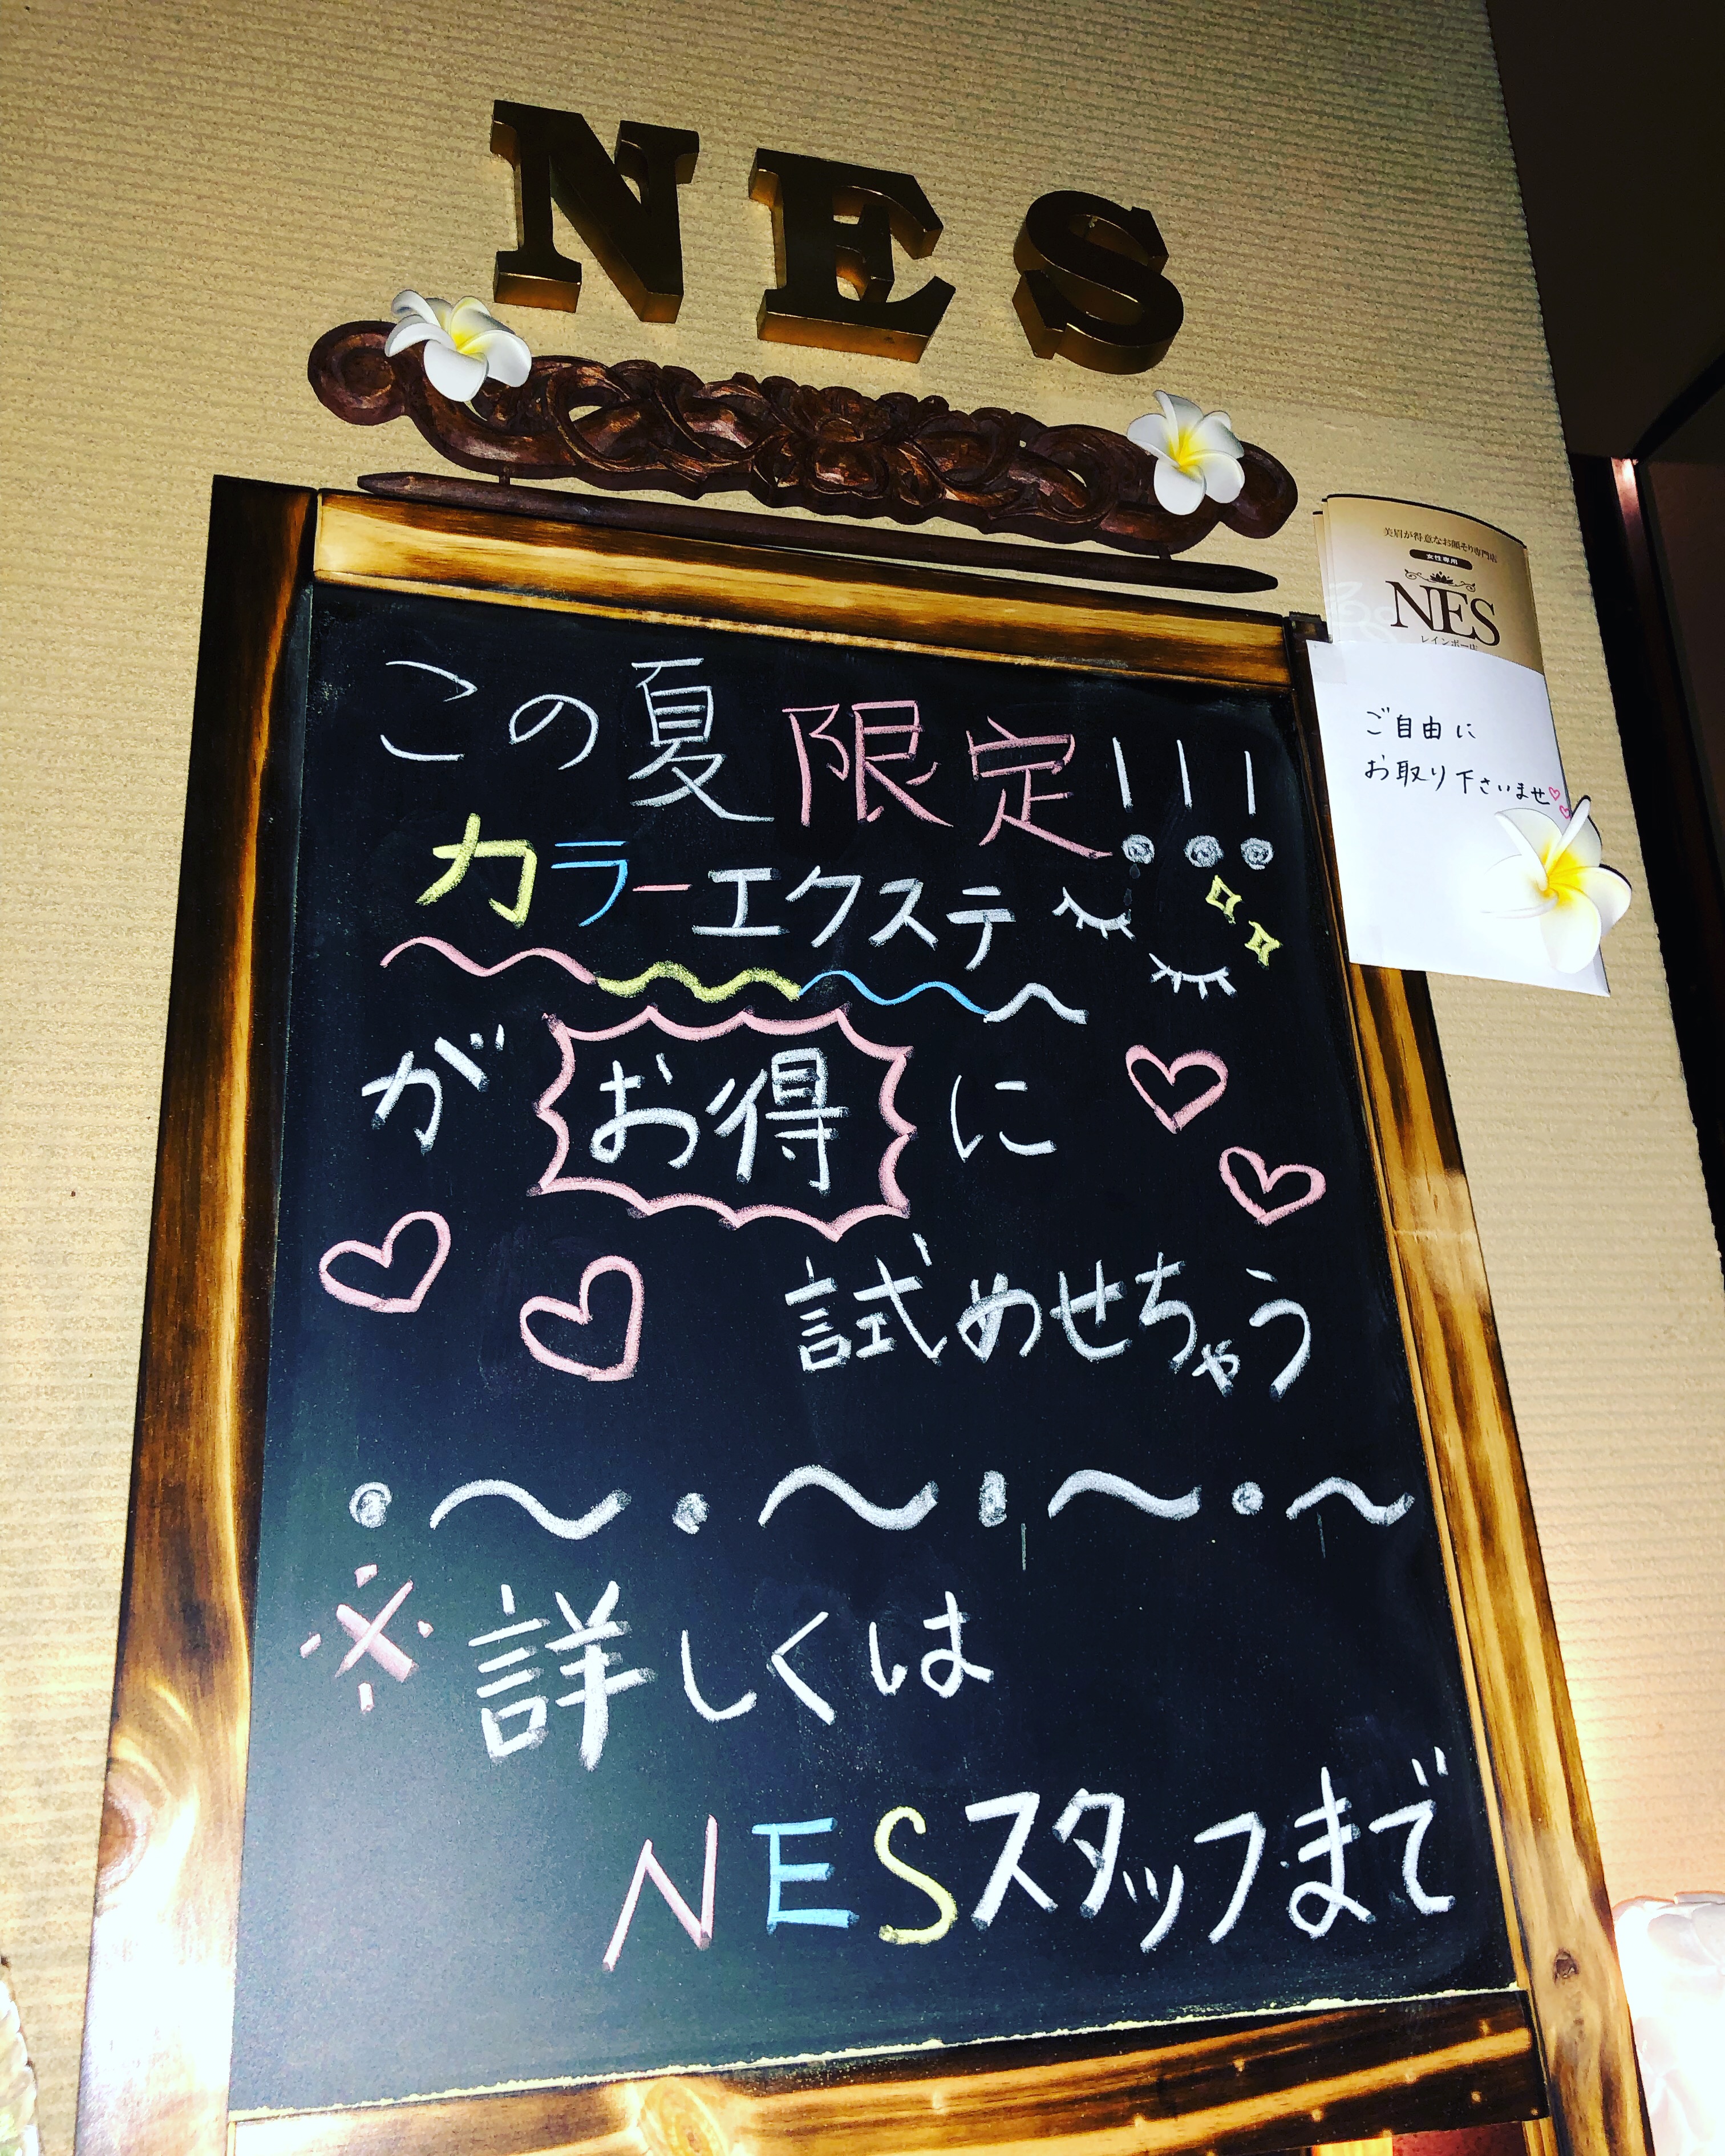 NES
美眉が得意なお顔そり専門店
女性専用
NES
レインボー店
ご自由に
お取り下さいませ♡♡
この夏限定!!!
カラーエクステ
がお得に
試めせちゃう
・〜・〜・〜・〜
※詳しくは
NESスタッフまで